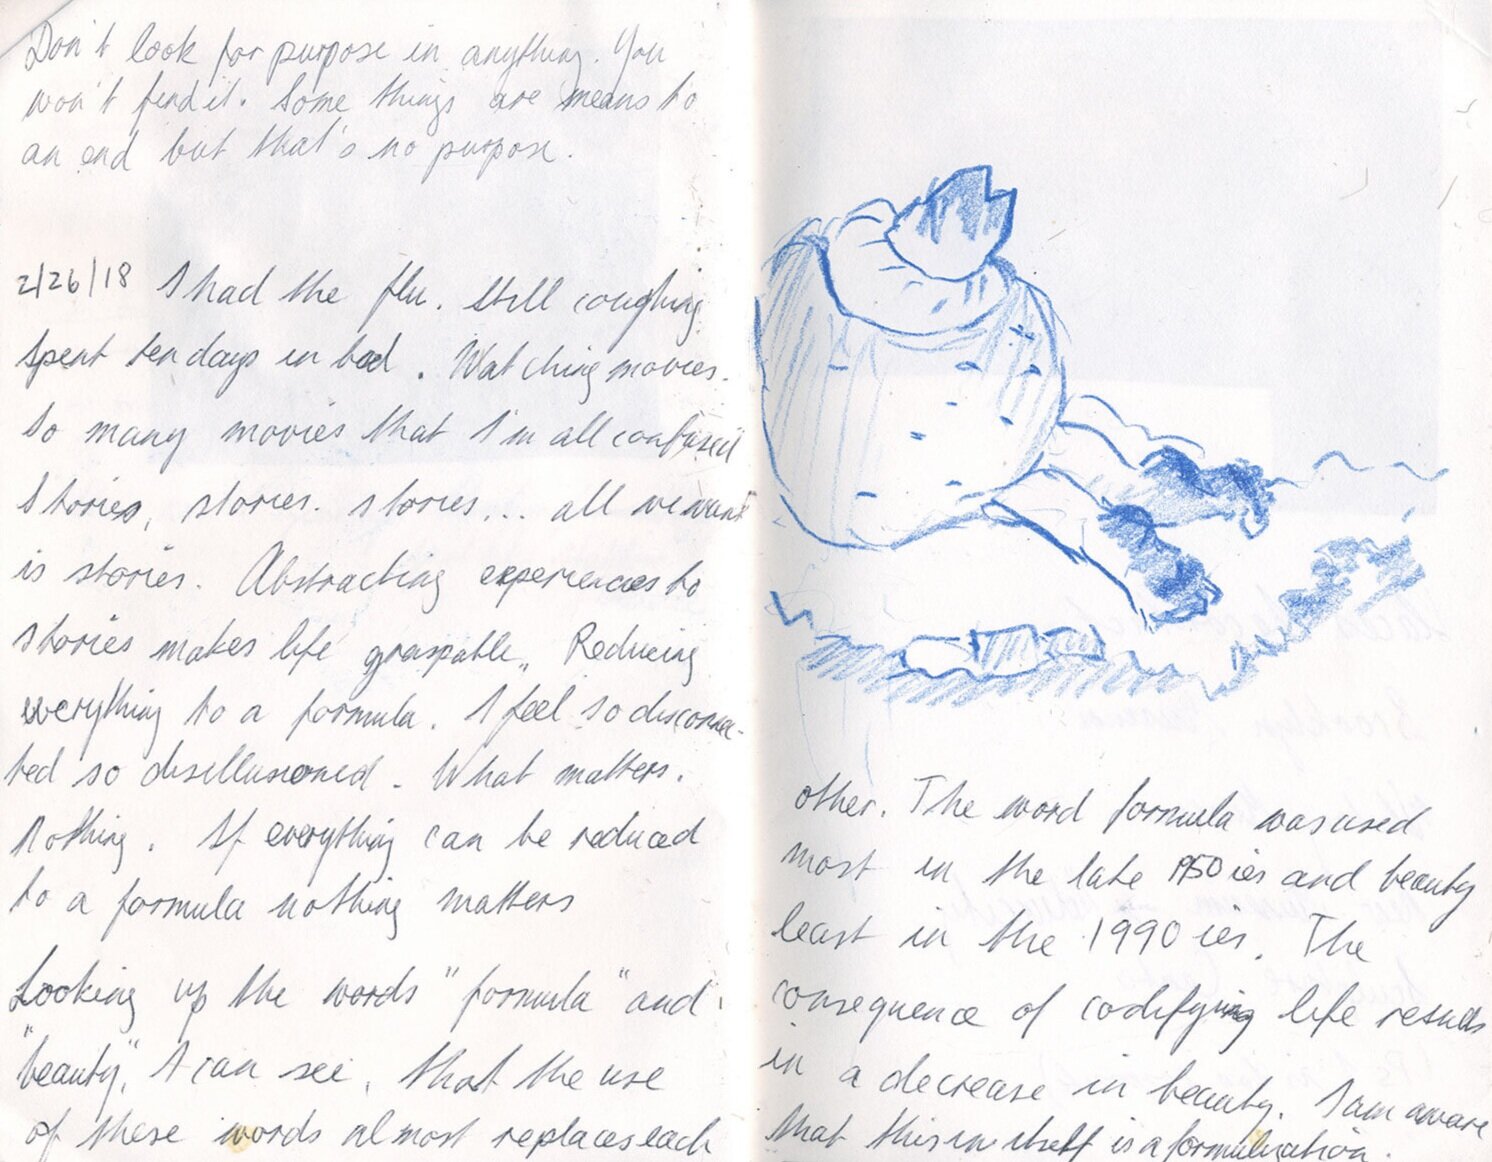 Don't look for purpose in anything. You
won't find it. Some things are means to
an end but that's no purpose.
2/26/18 I had the flu. Still coughing
Spent ten days in bed. Watching movies.
So many movies that I'm all confused
Stories, stories. stories... all we want
is stories. Abstracting experiences to
stories makes life graspable. Reducing
everything to a formula. I feel so disconnec-
ted so disillusioned. What matters.
Nothing. If everything can be reduced
to a formula nothing matters
Looking up the words "formula" and
"beauty", I can see, that the use
of these words almost replaces each
other. The word formula was used
most in the late 1950ies and beauty
least in the 1990ies. The
consequence of codifying life results
in a decrease in beauty. I am aware
that this in itself is a formulization.